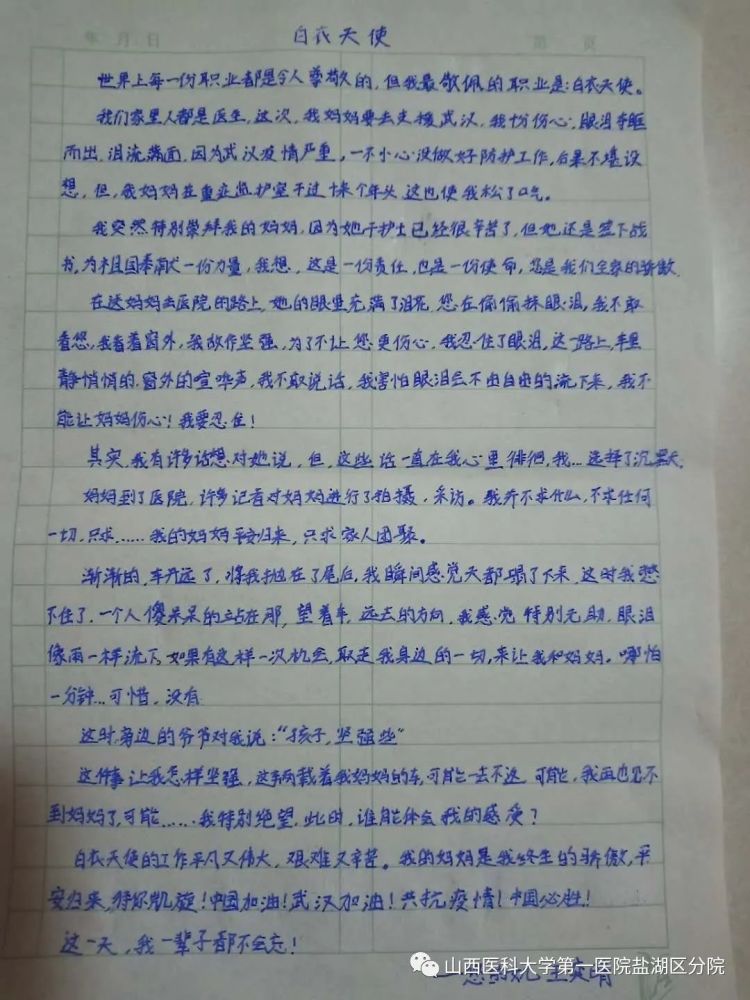 年 月 日
第 页
白衣天使
世界上每一份职业都是令人尊敬的，但我最敬佩的职业是：白衣天使。
我们家里人都是医生，这次，我妈妈要去支援武汉，我十分伤心，眼泪夺眶
而出，泪流满面，因为武汉疫情严重，一不小心没做好防护工作，后果不堪设
想，但，我妈妈在重症监护室干过十来个年头，这也使我松了口气。
我突然特别崇拜我的妈妈，因为她干护士已经很辛苦了，但她还是签下战
书，为祖国奉献一份力量，我想，这是一份责任，也是一份使命，您是我们全家的骄傲。
在送妈妈去医院的路上，她的眼里充满了泪花，您在偷偷抹眼泪，我不敢
看您，我看着窗外，我故作坚强，为了不让您更伤心，我忍住了眼泪，这一路上，车里
静悄悄的，窗外的喧哗声，我不敢说话，我害怕眼泪会不由自由的流下来，我不
能让妈妈伤心！我要忍住！
其实，我有许多话想对她说，但，这些话一直在我心里徘徊，我…选择了沉默。
妈妈到了医院，许多记者对妈妈进行了拍摄，采访。我并不求什么，不求任何
一切，只求……我的妈妈平安归来，只求家人团聚。
渐渐的，车开远了，将我抛在了尾后，我瞬间感觉天都塌了下来，这时我憋
不住了，一个人傻呆呆的站在那，望着车，远去的方向，我感觉特别无助，眼泪
像雨一样流下，如果有这样一次机会，取走我身边的一切，来让我和妈妈。哪怕
一分钟…可惜，没有
这时，身边的爷爷对我说：“孩子，坚强些”
这件事让我怎样坚强，这辆载着我妈妈的车，可能一去不返，可能，我再也见不
到妈妈了，可能……我特别绝望，此时，谁能体会我的感受？
白衣天使的工作平凡又伟大，艰难又辛苦。我的妈妈是我终生的骄傲，平
安归来，待你凯旋！中国加油！武汉加油！共抗疫情！中国必胜！
这一天，我一辈子都不会忘！
山西医科大学第一医院盐湖区分院